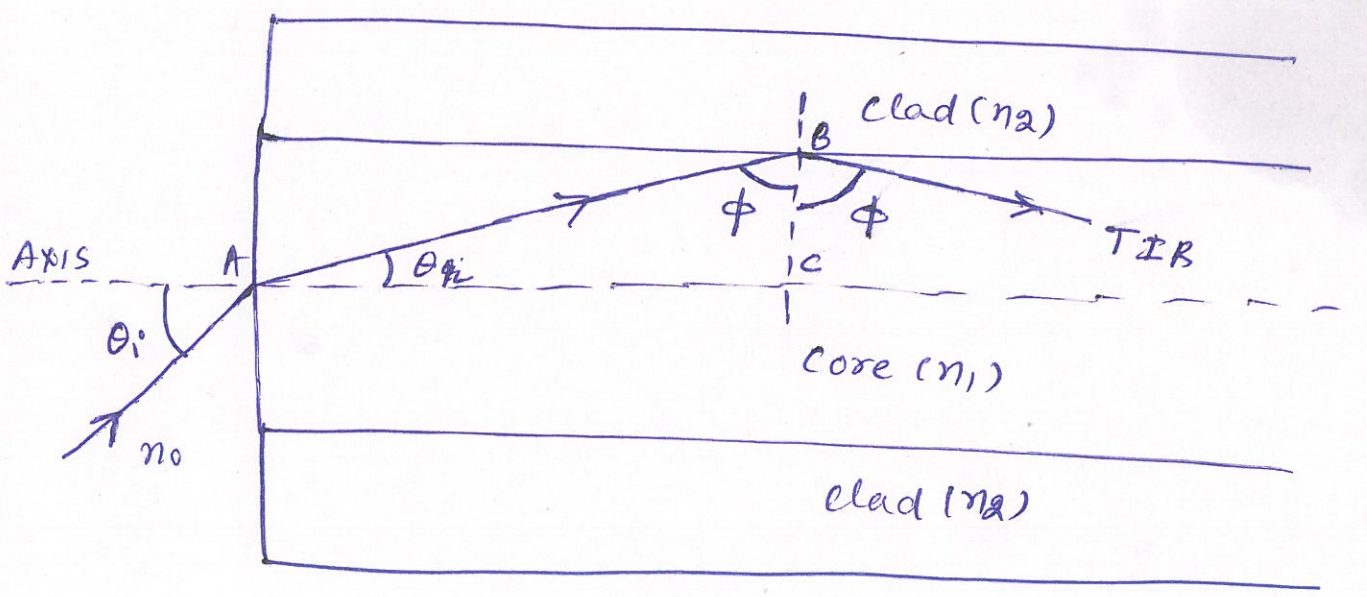 Clad (n2)
B
φ φ
TIR
AXIS A θr C
θi
Core (n1)
n0
Clad (n2)